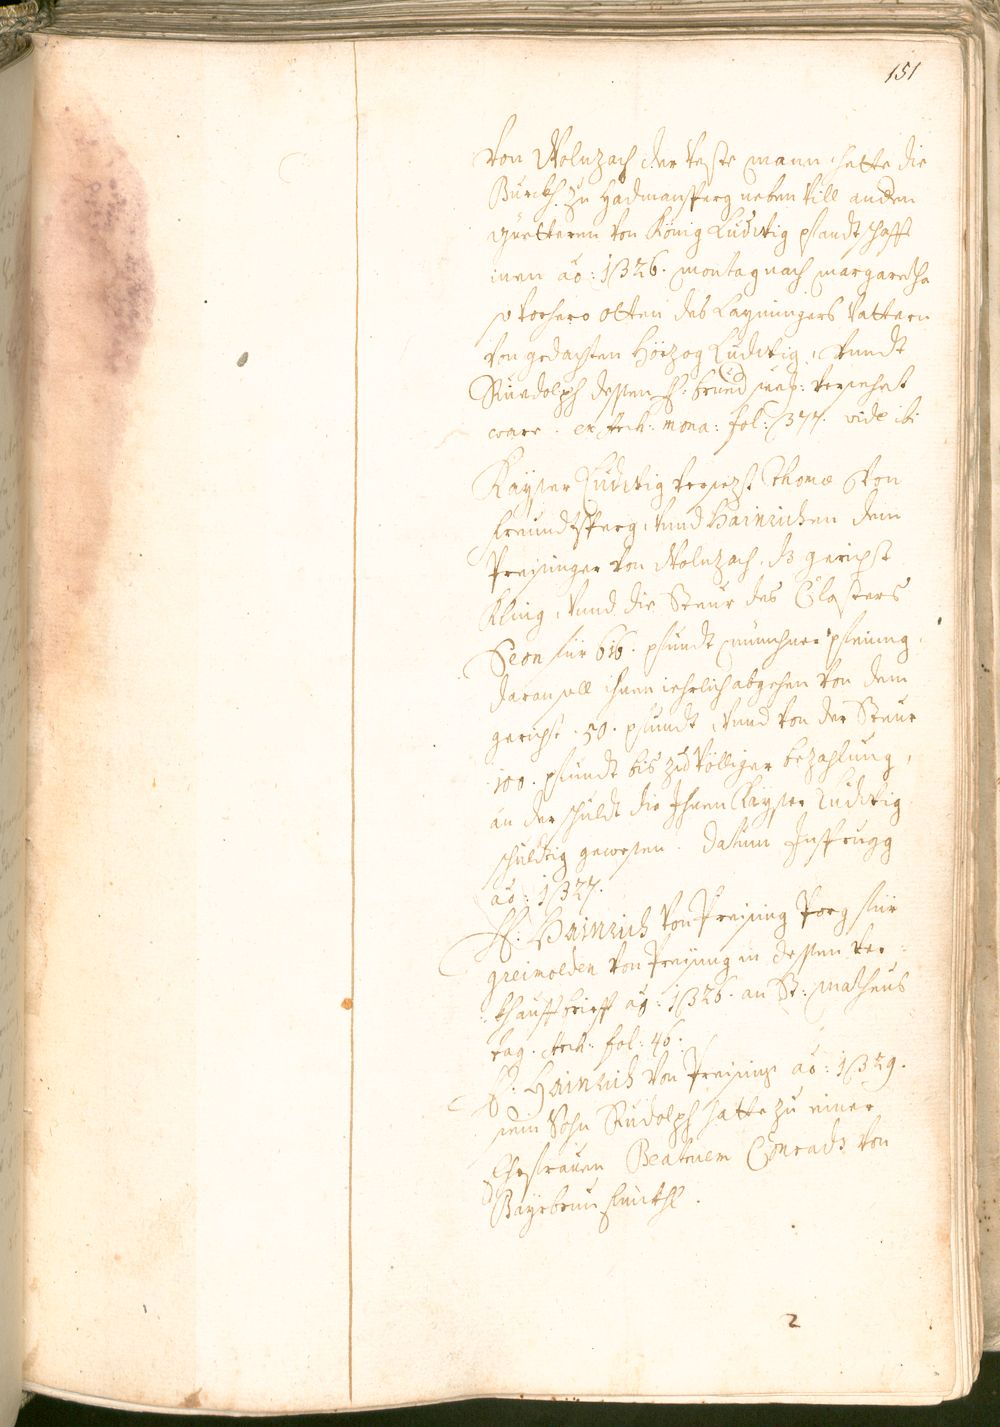 151
von Wolnzach der veste mann hatte die
Burckh. zu Hadmansperg neben vill andern
guetteren von König Ludwig pfandtschafft
innen aō: 1326. montag nach margaretha
so vorhero Otten des Layningers Vattern
von gedachten Hörzog Ludwig, vnndt
Ruedolph dessen H: brued versezt
ware. ex Arch: mona: fol: 377. vide ibi
Kayser Ludwig versezt Thomæ von
freundtsperg, vnnd Hainrichen dem
Preysinger von Wolnzach, dz gericht
Kling, vnnd die Steur des Closters
Seon für 616. pfundt münchner pfening,
daran soll ihnen iehrlich abgehen von dem
gericht. 50. pfundt, vnnd von der Steur
100. pfundt bis zu völliger bezahlung,
an der schuldt die Ihnen Kayser Ludwig
schuldig gewesen. datum Insprugg
aō: 1327.
H: Hainrich von Preysing Porg für
greimolden von Preysing in dessen ver=
khauffbrieff aō: 1326. an St: matheus
tag. Arch: fol: 46.
H. Hainrich von Preysing aō: 1329.
sein Sohn Rudolph hatte zu einer
Ehefrauen Beatricem Conrads von
Bayrbrun
2